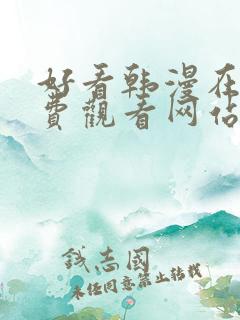 好看韩漫在
费觀看网站
钱志國
未经同意禁止转载